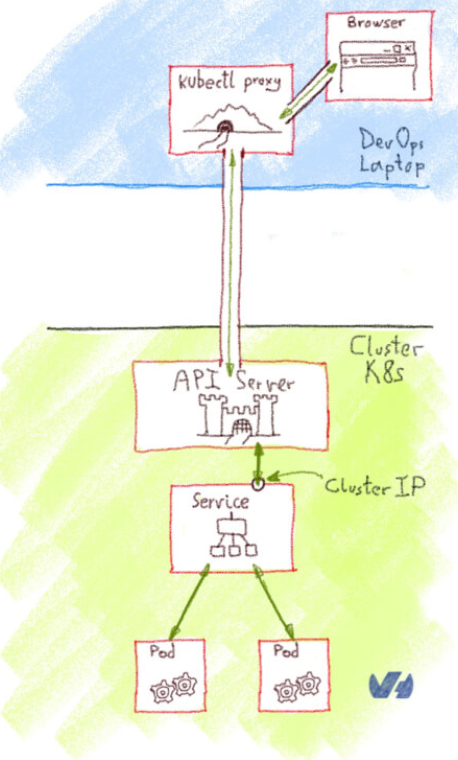 Browser
Kubectl proxy
DevOps
Laptop
Cluster
K8s
API Server
Cluster IP
Service
Pod
Pod